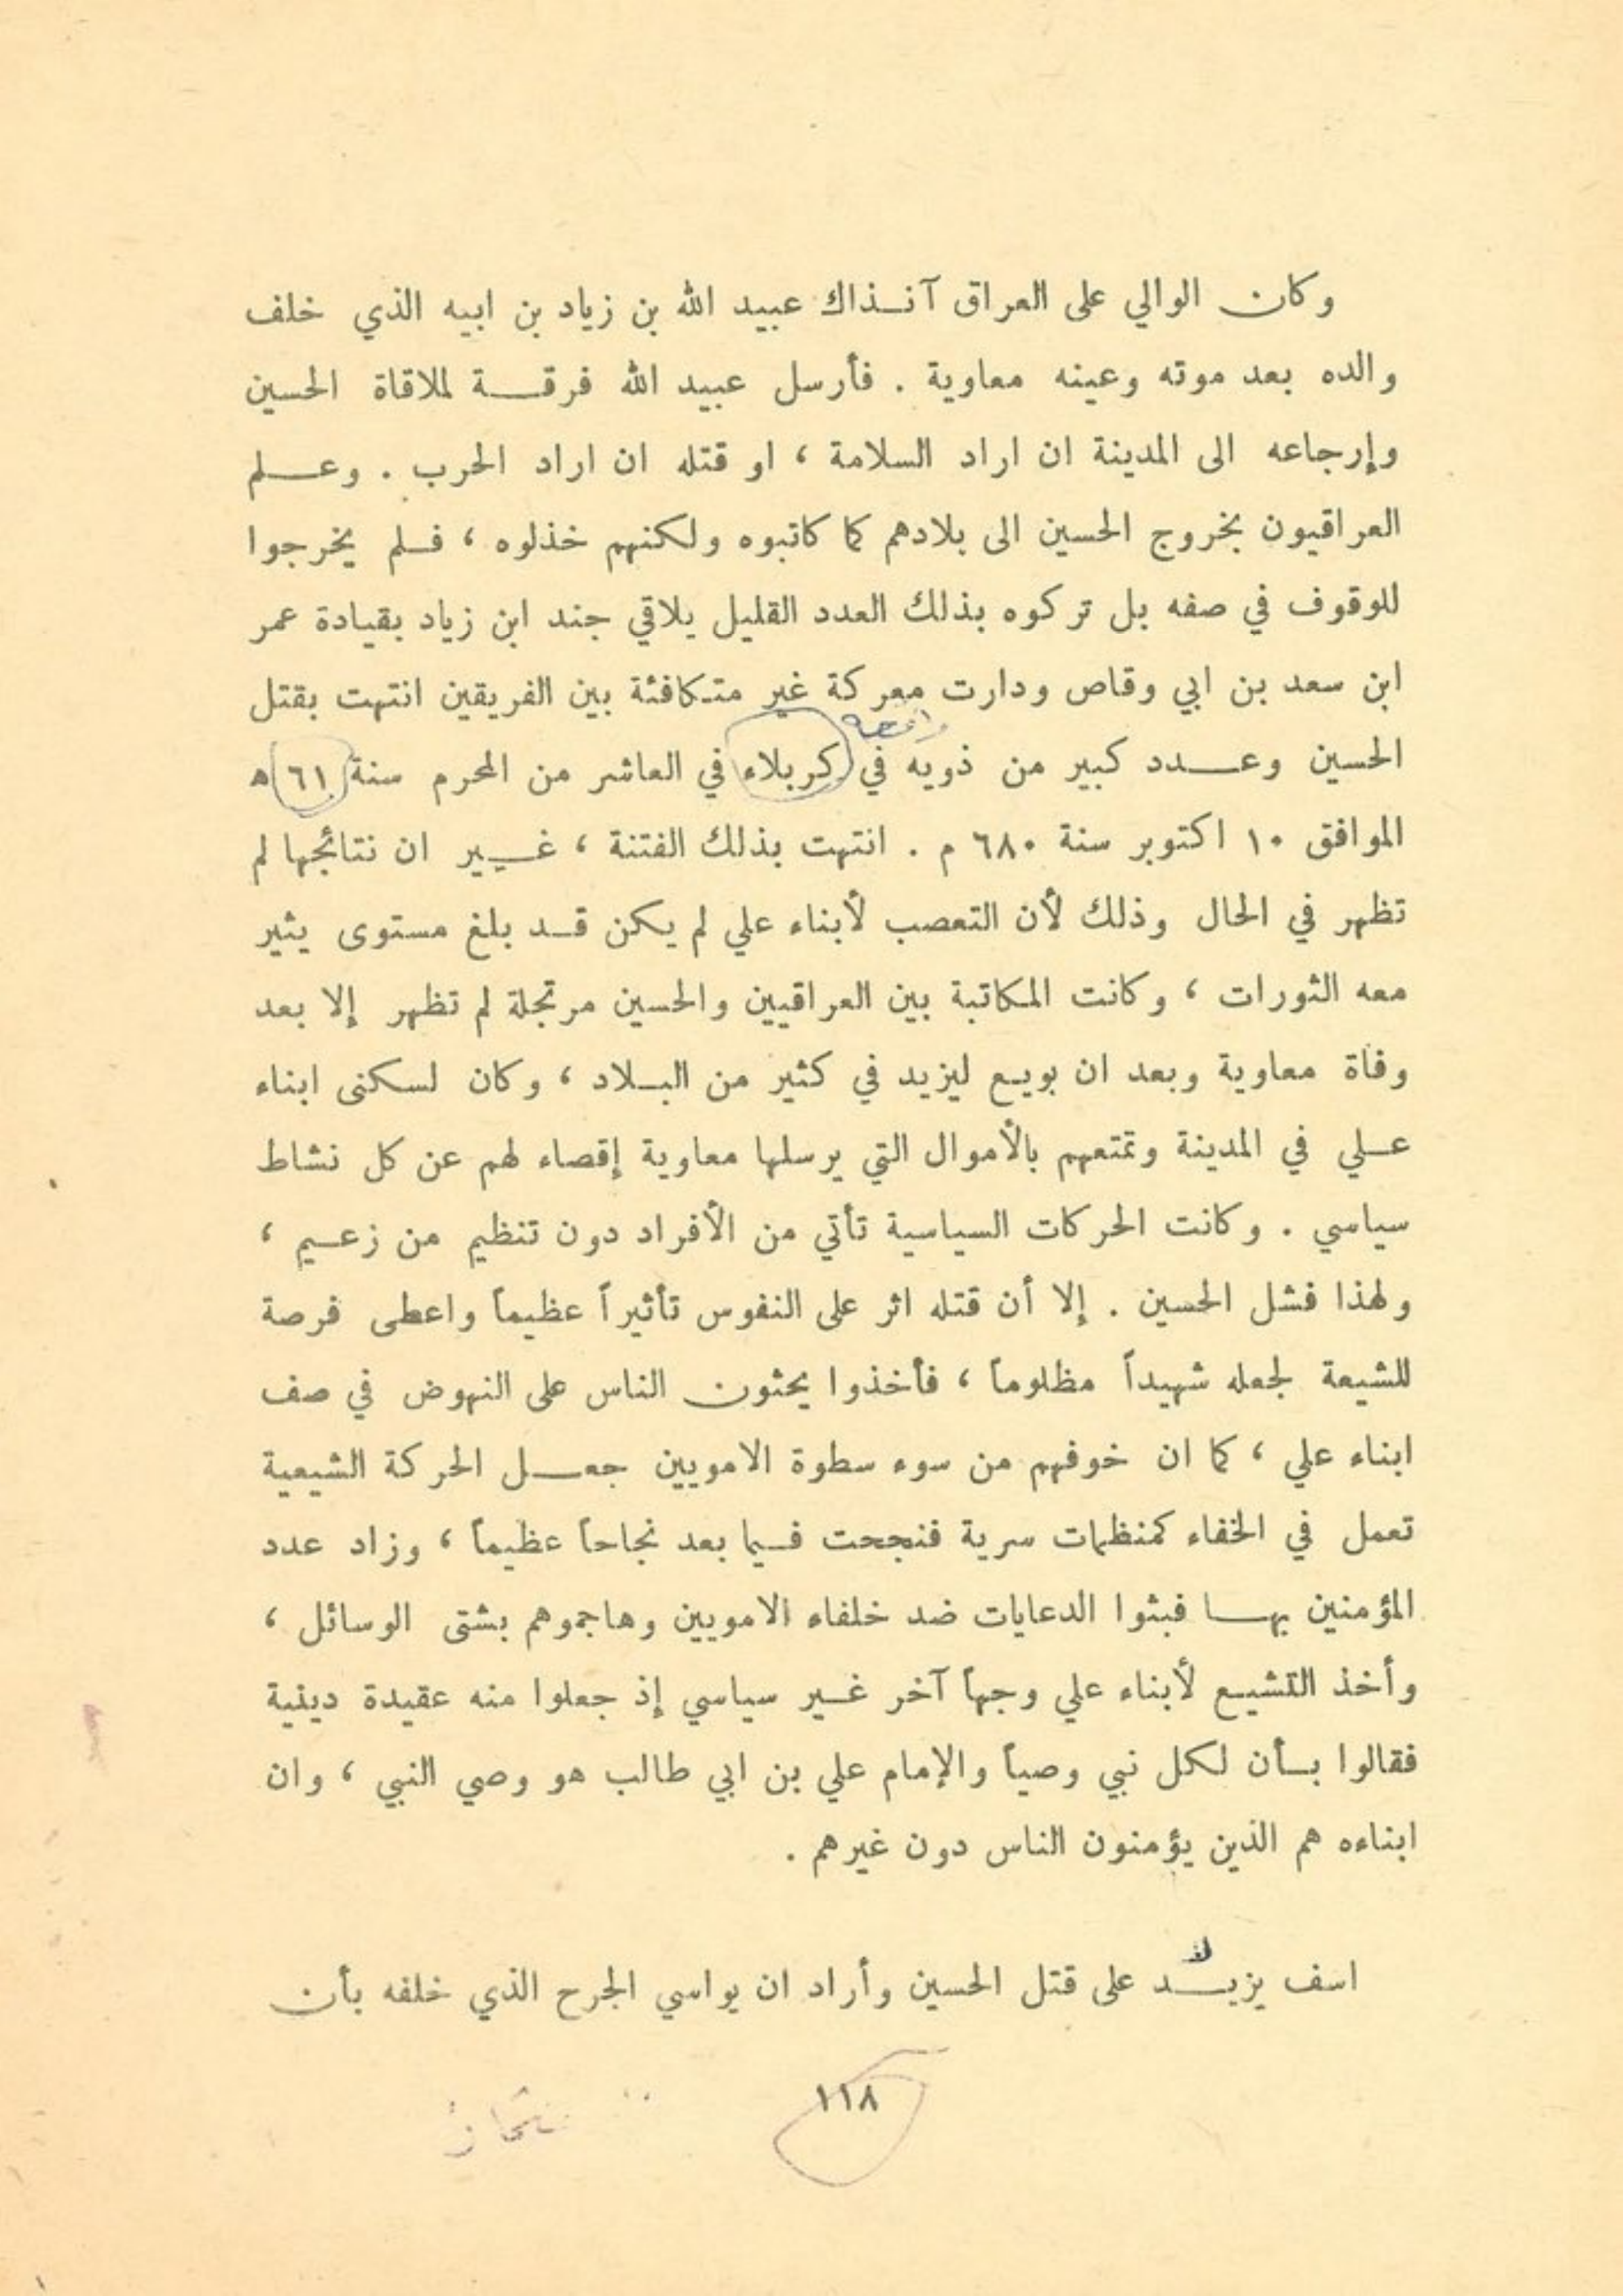 وكان الوالي على العراق آنذاك عبيد الله بن زياد بن ابيه الذي خلف
والده بعد موته وعينه معاوية . فأرسل عبيد الله فرقة لملاقاة الحسين
وإرجاعه الى المدينة ان اراد السلامة ، او قتله ان اراد الحرب . وعلم
العراقيون بخروج الحسين الى بلادهم كما كاتبوه ولكنهم خذلوه ، فلم يخرجوا
للوقوف في صفه بل تركوه بذلك العدد القليل يلاقي جند ابن زياد بقيادة عمر
ابن سعد بن ابي وقاص ودارت معركة غير متكافئة بين الفريقين انتهت بقتل
الحسين وعدد كبير من ذويه في كربلاء في العاشر من المحرم سنة ٦١ ه
الموافق ١٠ اكتوبر سنة ٦٨٠ م . انتهت بذلك الفتنة ، غير ان نتائجها لم
تظهر في الحال وذلك لأن التعصب لأبناء علي لم يكن قد بلغ مستوى يثير
معه الثورات ، وكانت المكاتبة بين العراقيين والحسين مرتجلة لم تظهر إلا بعد
وفاة معاوية وبعد ان بويع ليزيد في كثير من البلاد ، وكان لسكنى ابناء
علي في المدينة وتمتعهم بالأموال التي يرسلها معاوية إقصاء لهم عن كل نشاط
سياسي . وكانت الحركات السياسية تأتي من الأفراد دون تنظيم من زعيم ،
ولهذا فشل الحسين . إلا أن قتله اثر على النفوس تأثيراً عظيماً واعطى فرصة
للشيعة لجعله شهيداً مظلوماً ، فأخذوا يحثون الناس على النهوض في صف
ابناء علي ، كما ان خوفهم من سوء سطوة الامويين جعل الحركة الشيعية
تعمل في الخفاء كمنظمات سرية فنجحت فيما بعد نجاحاً عظيماً ، وزاد عدد
المؤمنين بها فبثوا الدعايات ضد خلفاء الامويين وهاجموهم بشتى الوسائل ،
وأخذ التشيع لأبناء علي وجهاً آخر غير سياسي إذ جعلوا منه عقيدة دينية
فقالوا بأن لكل نبي وصياً والإمام علي بن ابي طالب هو وصي النبي ، وان
ابناءه هم الذين يؤمنون الناس دون غيرهم .
اسف يزيد على قتل الحسين وأراد ان يواسي الجرح الذي خلفه بأن
١١٨